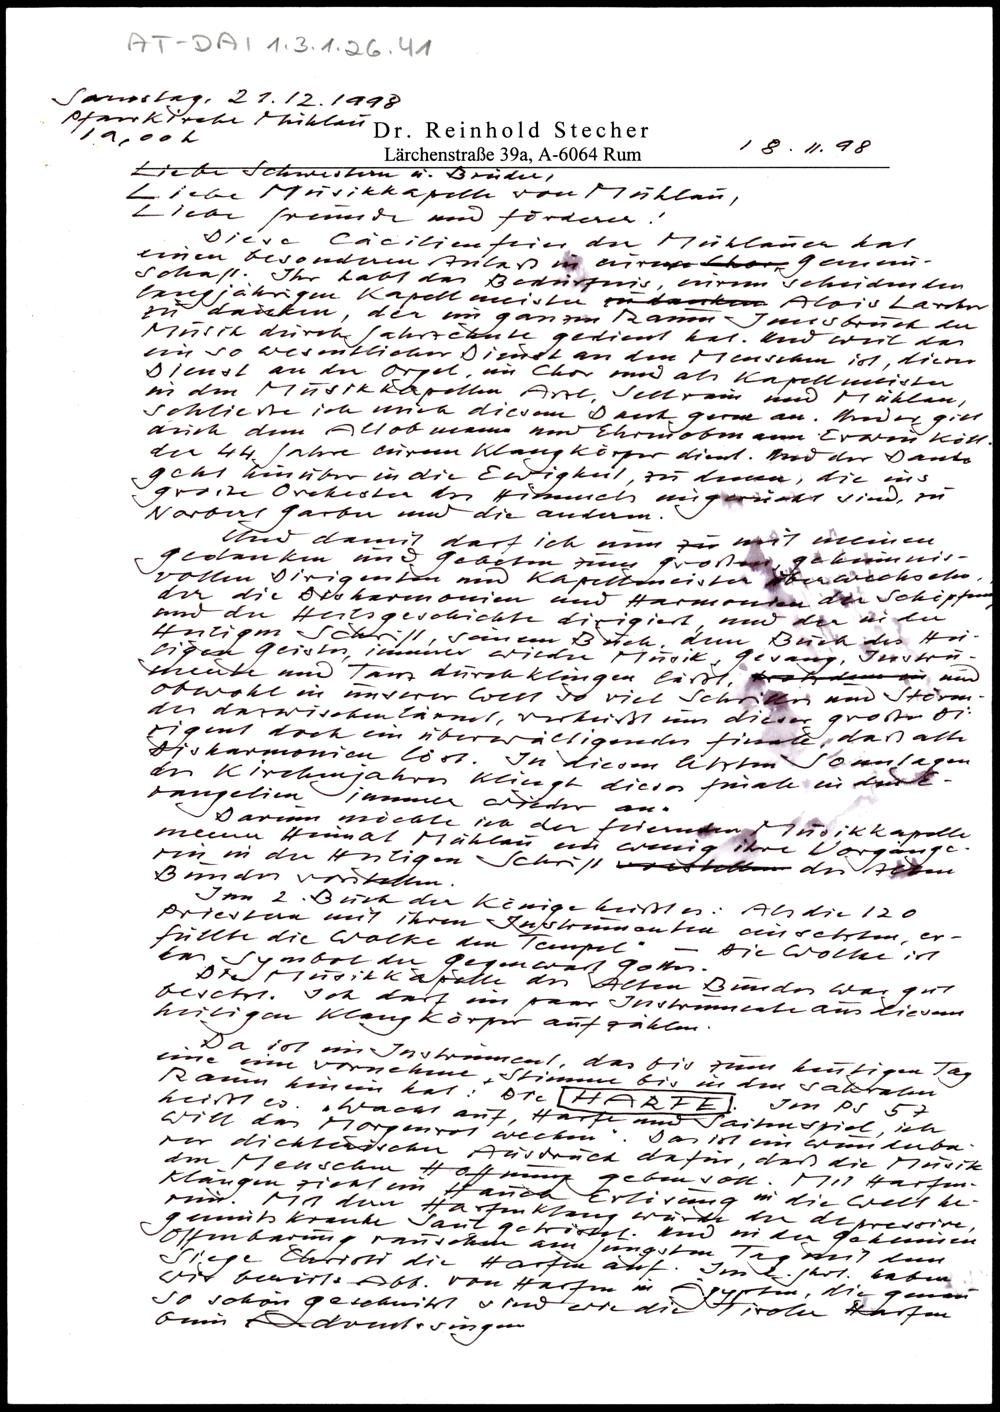 AT-DAI 1.3.1.26.41
Samstag, 21.12.1998
Pfarrkirche Mühlau
19,00h
Dr. Reinhold Stecher
Lärchenstraße 39a, A-6064 Rum
18.11.98
Liebe Schwestern u. Brüder,
Liebe Musikkapelle von Mühlau,
Liebe Freunde und Förderer!
Diese Cäcilienfeier der Mühlauer hat
einen besonderen Anlaß in eurer Chor Gemein-
schaft. Ihr habt das Bedürfnis, eurem scheidenden
langjährigen Kapellmeister zu danken Alois Larcher
zu danken, der im ganzen Raum Innsbruck der
Musik durch Jahrzehnte gedient hat. Und weil das
ein so wesentlicher Dienst an den Menschen ist, dieser
Dienst an der Orgel, im Chor und als Kapellmeister
in den Musikkapellen Arzl, Sellrain und Mühlau,
schließe ich mich diesem Dank gerne an. Und er gilt
auch dem Altobmann und Ehrenobmann Erwin Köll
der 44 Jahre eurem Klangkörper dient. Und der Dank
geht hinüber in die Ewigkeit, zu denen, die ins
große Orchester des Himmels eingerückt sind, zu
Norbert Garber und die anderen.
Und damit darf ich nun zu mit meinen
Gedanken und Gebeten zum großen, geheimnis-
vollen Dirigenten und Kapellmeister überwechseln,
der die Disharmonien und Harmonien der Schöpfung
und der Heilsgeschichte dirigiert, und der in der
Heiligen Schrift, seinem Buch, dem Buch des Hei-
ligen Geistes, immer wieder Musik, Gesang, Instru-
mente und Tanz durchklingen läßt, trotzdem in und
obwohl in unserer Welt so viel Schrilles und Stören-
des dazwischenlärmt, verheißt uns dieser große Di-
rigent doch ein überwältigendes Finale, das alle
Disharmonien löst. In diesen letzten Sonntagen
des Kirchenjahres klingt dieses Finale in den E-
vangelien immer wieder an.
Darum möchte ich der feiernden Musikkapelle
meiner Heimat Mühlau ein wenig ihre Vorgänge-
rin in der Heiligen Schrift vorstellen des Alten
Bundes vorstellen.
Im 2. Buch der Könige heißt es: Als die 120
Priestern mit ihren Instrumenten einsetzten, er-
füllte die Wolke den Tempel" – Die Wolke ist
ein Symbol der Gegenwart Gottes.
Die Musikkapelle des Alten Bundes war gut
besetzt. Ich darf ein paar Instrumente aus diesem
heiligen Klangkörper aufzählen.
Da ist ein Instrument, das bis zum heutigen Tag
eine vornehme Stimme bis in den sakralen
Raum hinein hat: Die HARFE. Im Ps 57
heißt es: "Wacht auf, Harfe und Saitenspiel, ich
will das Morgenrot wecken". Das ist ein wunderba-
rer dichterischer Ausdruck dafür, daß die Musik
den Menschen Hoffnung geben soll. Mit Harfen-
klängen zieht ein Hauch Erlösung in die Welt he-
rein. Mit dem Harfenklang wurde der depressive,
gemütskranke Saul getröstet. Und in der Geheimen
Offenbarung rauschen am Jüngsten Tag mit dem
Siege Christi die Harfen auf. Im 2. Jhrt. haben
wir bereits Abb. von Harfen in Ägypten, die genau
so schön geschnitzt sind wie die Tiroler Harfen
beim Adventsingen